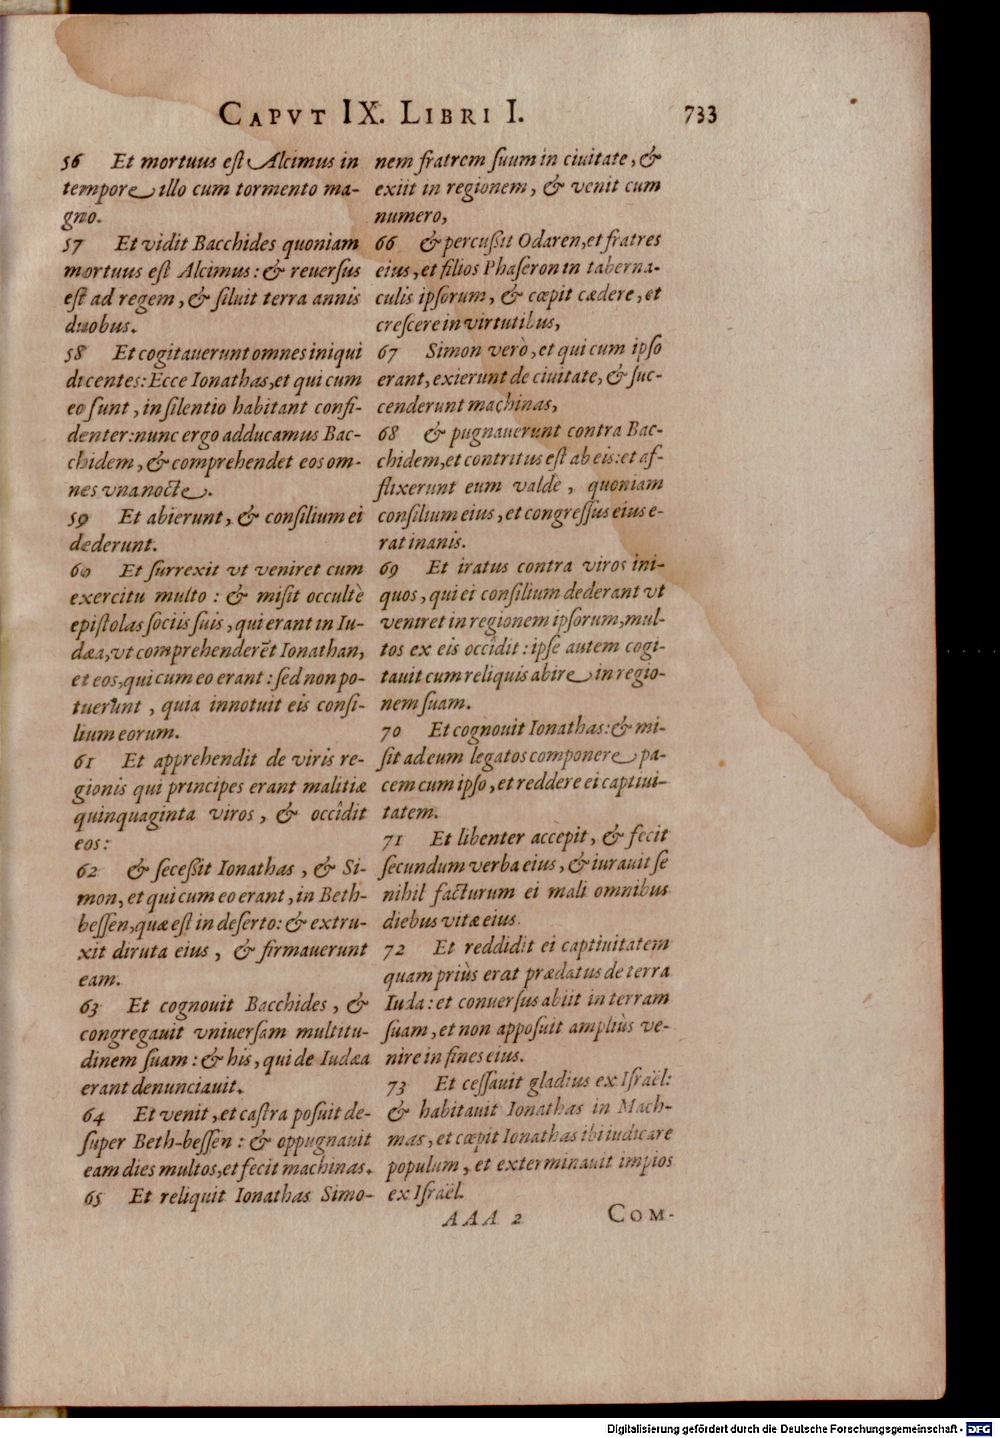 CAPVT IX. LIBRI I. 733
56 Et mortuus eſt Alcimus in
tempore illo cum tormento ma-
gno.
57 Et vidit Bacchides quoniam
mortuus eſt Alcimus: & reuerſus
eſt ad regem, & ſiluit terra annis
duobus.
58 Et cogitauerunt omnes iniqui
dicentes: Ecce Ionathas, et qui cum
eo ſunt, in ſilentio habitant confi-
denter: nunc ergo adducamus Bac-
chidem, & comprehendet eos om-
nes vna nocte.
59 Et abierunt, & conſilium ei
dederunt.
60 Et ſurrexit vt veniret cum
exercitu multo: & miſit occultè
epiſtolas ſociis ſuis, qui erant in Iu-
dæa, vt comprehenderēt Ionathan,
et eos, qui cum eo erant: ſed non po-
tuerunt, quia innotuit eis conſi-
lium eorum.
61 Et apprehendit de viris re-
gionis qui principes erant malitiæ
quinquaginta viros, & occîdit
eos:
62 & ſeceßit Ionathas, & Si-
mon, et qui cum eo erant, in Beth-
beſſen, quæ eſt in deſerto: & extru-
xit diruta eius, & firmauerunt
eam.
63 Et cognouit Bacchides, &
congregauit vniuerſam multitu-
dinem ſuam: & his, qui de Iudæa
erant denunciauit.
64 Et venit, et caſtra poſuit de-
ſuper Beth-beſſen: & oppugnauit
eam dies multos, et fecit machinas.
65 Et reliquit Ionathas Simo-
nem fratrem ſuum in ciuitate, &
exiit in regionem, & venit cum
numero,
66 & percußit Odaren, et fratres
eius, et filios Phaſeron in taberna-
culis ipſorum, & cœpit cædere, et
creſcere in virtutibus,
67 Simon verò, et qui cum ipſo
erant, exierunt de ciuitate, & ſuc-
cenderunt machinas,
68 & pugnauerunt contra Bac-
chidem, et contritus eſt ab eis: et af-
flixerunt eum valdè, quoniam
conſilium eius, et congreſſus eius e-
rat inanis.
69 Et iratus contra viros ini-
quos, qui ei conſilium dederant vt
veniret in regionem ipſorum, mul-
tos ex eis occîdit: ipſe autem cogi-
tauit cum reliquis abire in regio-
nem ſuam.
70 Et cognouit Ionathas: & mi-
ſit ad eum legatos componere pa-
cem cum ipſo, et reddere ei captiui-
tatem.
71 Et libenter accepit, & fecit
ſecundum verba eius, & iurauit ſe
nihil facturum ei mali omnibus
diebus vitæ eius.
72 Et reddidit ei captiuitatem
quam priùs erat prædatus de terra
Iuda: et conuerſus abiit in terram
ſuam, et non appoſuit ampliùs ve-
nire in fines eius.
73 Et ceſſauit gladius ex Iſraël:
& habitauit Ionathas in Mach-
mas, et cœpit Ionathas ibi iudicare
populum, et exterminauit impios
ex Iſraël.
AAA 2 COM-
Digitalisierung gefördert durch die Deutsche Forschungsgemeinschaft - DFG